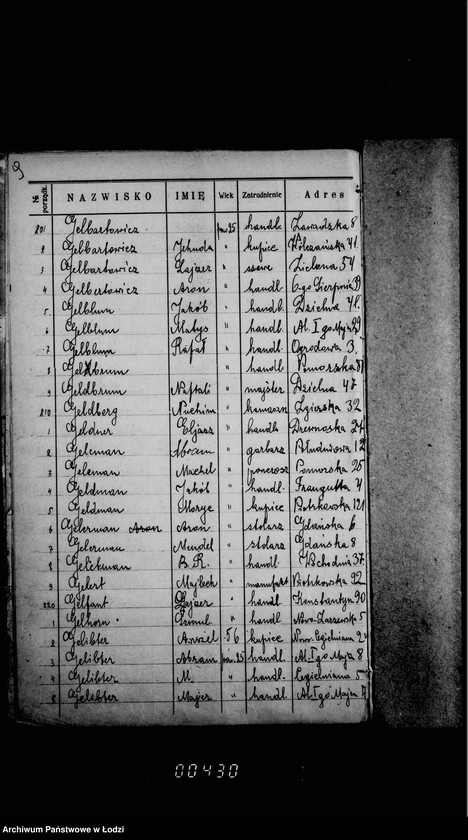 9
№ porządk. NAZWISKO IMIĘ Wiek Zatrudnienie Adres
201 Gelbartowicz pow. 25 handl. Zawadzka 8
2 Gelbartowicz Jehuda " kupiec Wólczańska 41
3 Gelbartowicz Lajzer " szewc Zielona 54
4 Gelbartowicz Aron " handl. 6-go Sierpnia
5 Gelblum Jakób " handl. Dzielna 41
6 Gelblum Matys " handl. Al. I go Maja 29
7 Gelblum Rafał " handl. Ogrodowa 3
8 Geldbrum " handl. Pomorska
9 Geldbrum Naftali " majster Dzielna 47
210 Geldberg Nuchim " kamaszn Zgierska 32
1 Geldner Eljasz " handl. Drewnoska 24
2 Geleman Abram " garbarz Południowa 12
3 Geleman Machel " ponczosz Pomorska 25
4 Geldman Jakób " handl. Traugutta 4
5 Geldman Morye " kupiec Piotrkowska 121
6 Gelerman Aron Aron " stolarz Gdańska 6
7 Gelerman Mendel " stolarz Gdańska 8
8 B. R. " handl. Wschodnia 37
9 Gelert Majlech " manufakt Piotrkowska 92
220 Gelfant Lajzer " handl. Konstantyn 90
1 Gelhorn " handl. Nowo-Zarzewska 5
2 Gelibter 56 kupiec Nowo-Cegielniana
3 Gelibter Abram pow. 25 handl. Al. I go Maja 8
4 Gelibter M. " handl. Cegielniana 5
5 Gelibter Majer " handl. Al. I go Maja
00430
Archiwum Państwowe w Łodzi